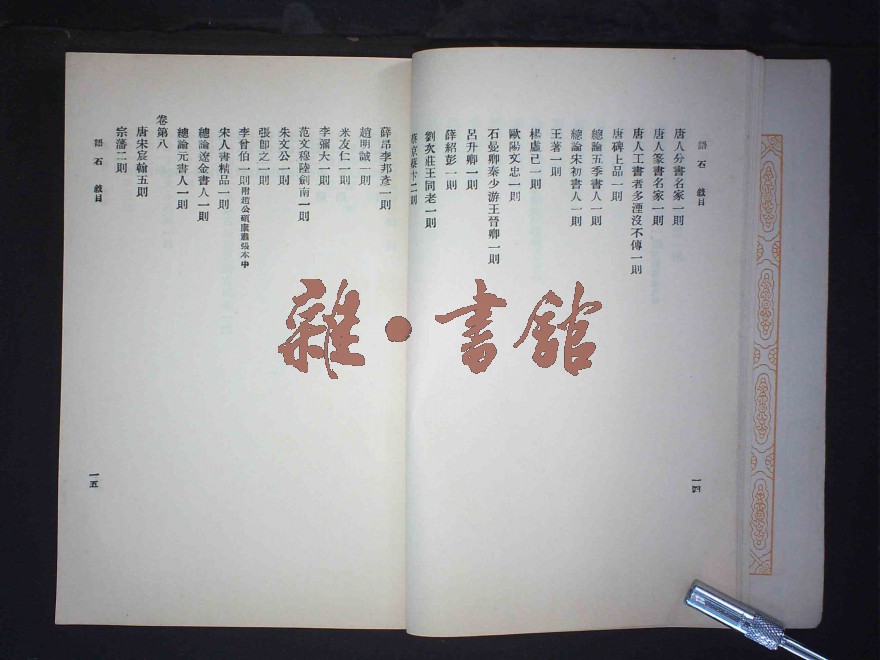 語石 敘目
唐人分書名家一則
唐人篆書名家一則
唐人工書者多湮沒不傳一則
唐碑上品一則
總論五季書人一則
總論宋初書人一則
王著一則
楊虛己一則
歐陽文忠一則
石曼卿秦少游王晉卿一則
呂升卿一則
薛紹彭一則
劉次莊王同老一則
蔡京蔡卞二則
一四
薛昂李邦彥一則
趙明誠一則
米友仁一則
李彌大一則
范文穆陸劍南一則
朱文公一則
張卽之一則
李曾伯一則附趙公碩康肅張本中
宋人書精品一則
總論遼金書人一則
總論元書人一則
卷第八
唐宋宸翰五則
宗藩二則
語石 敘目
一五
雜·書館